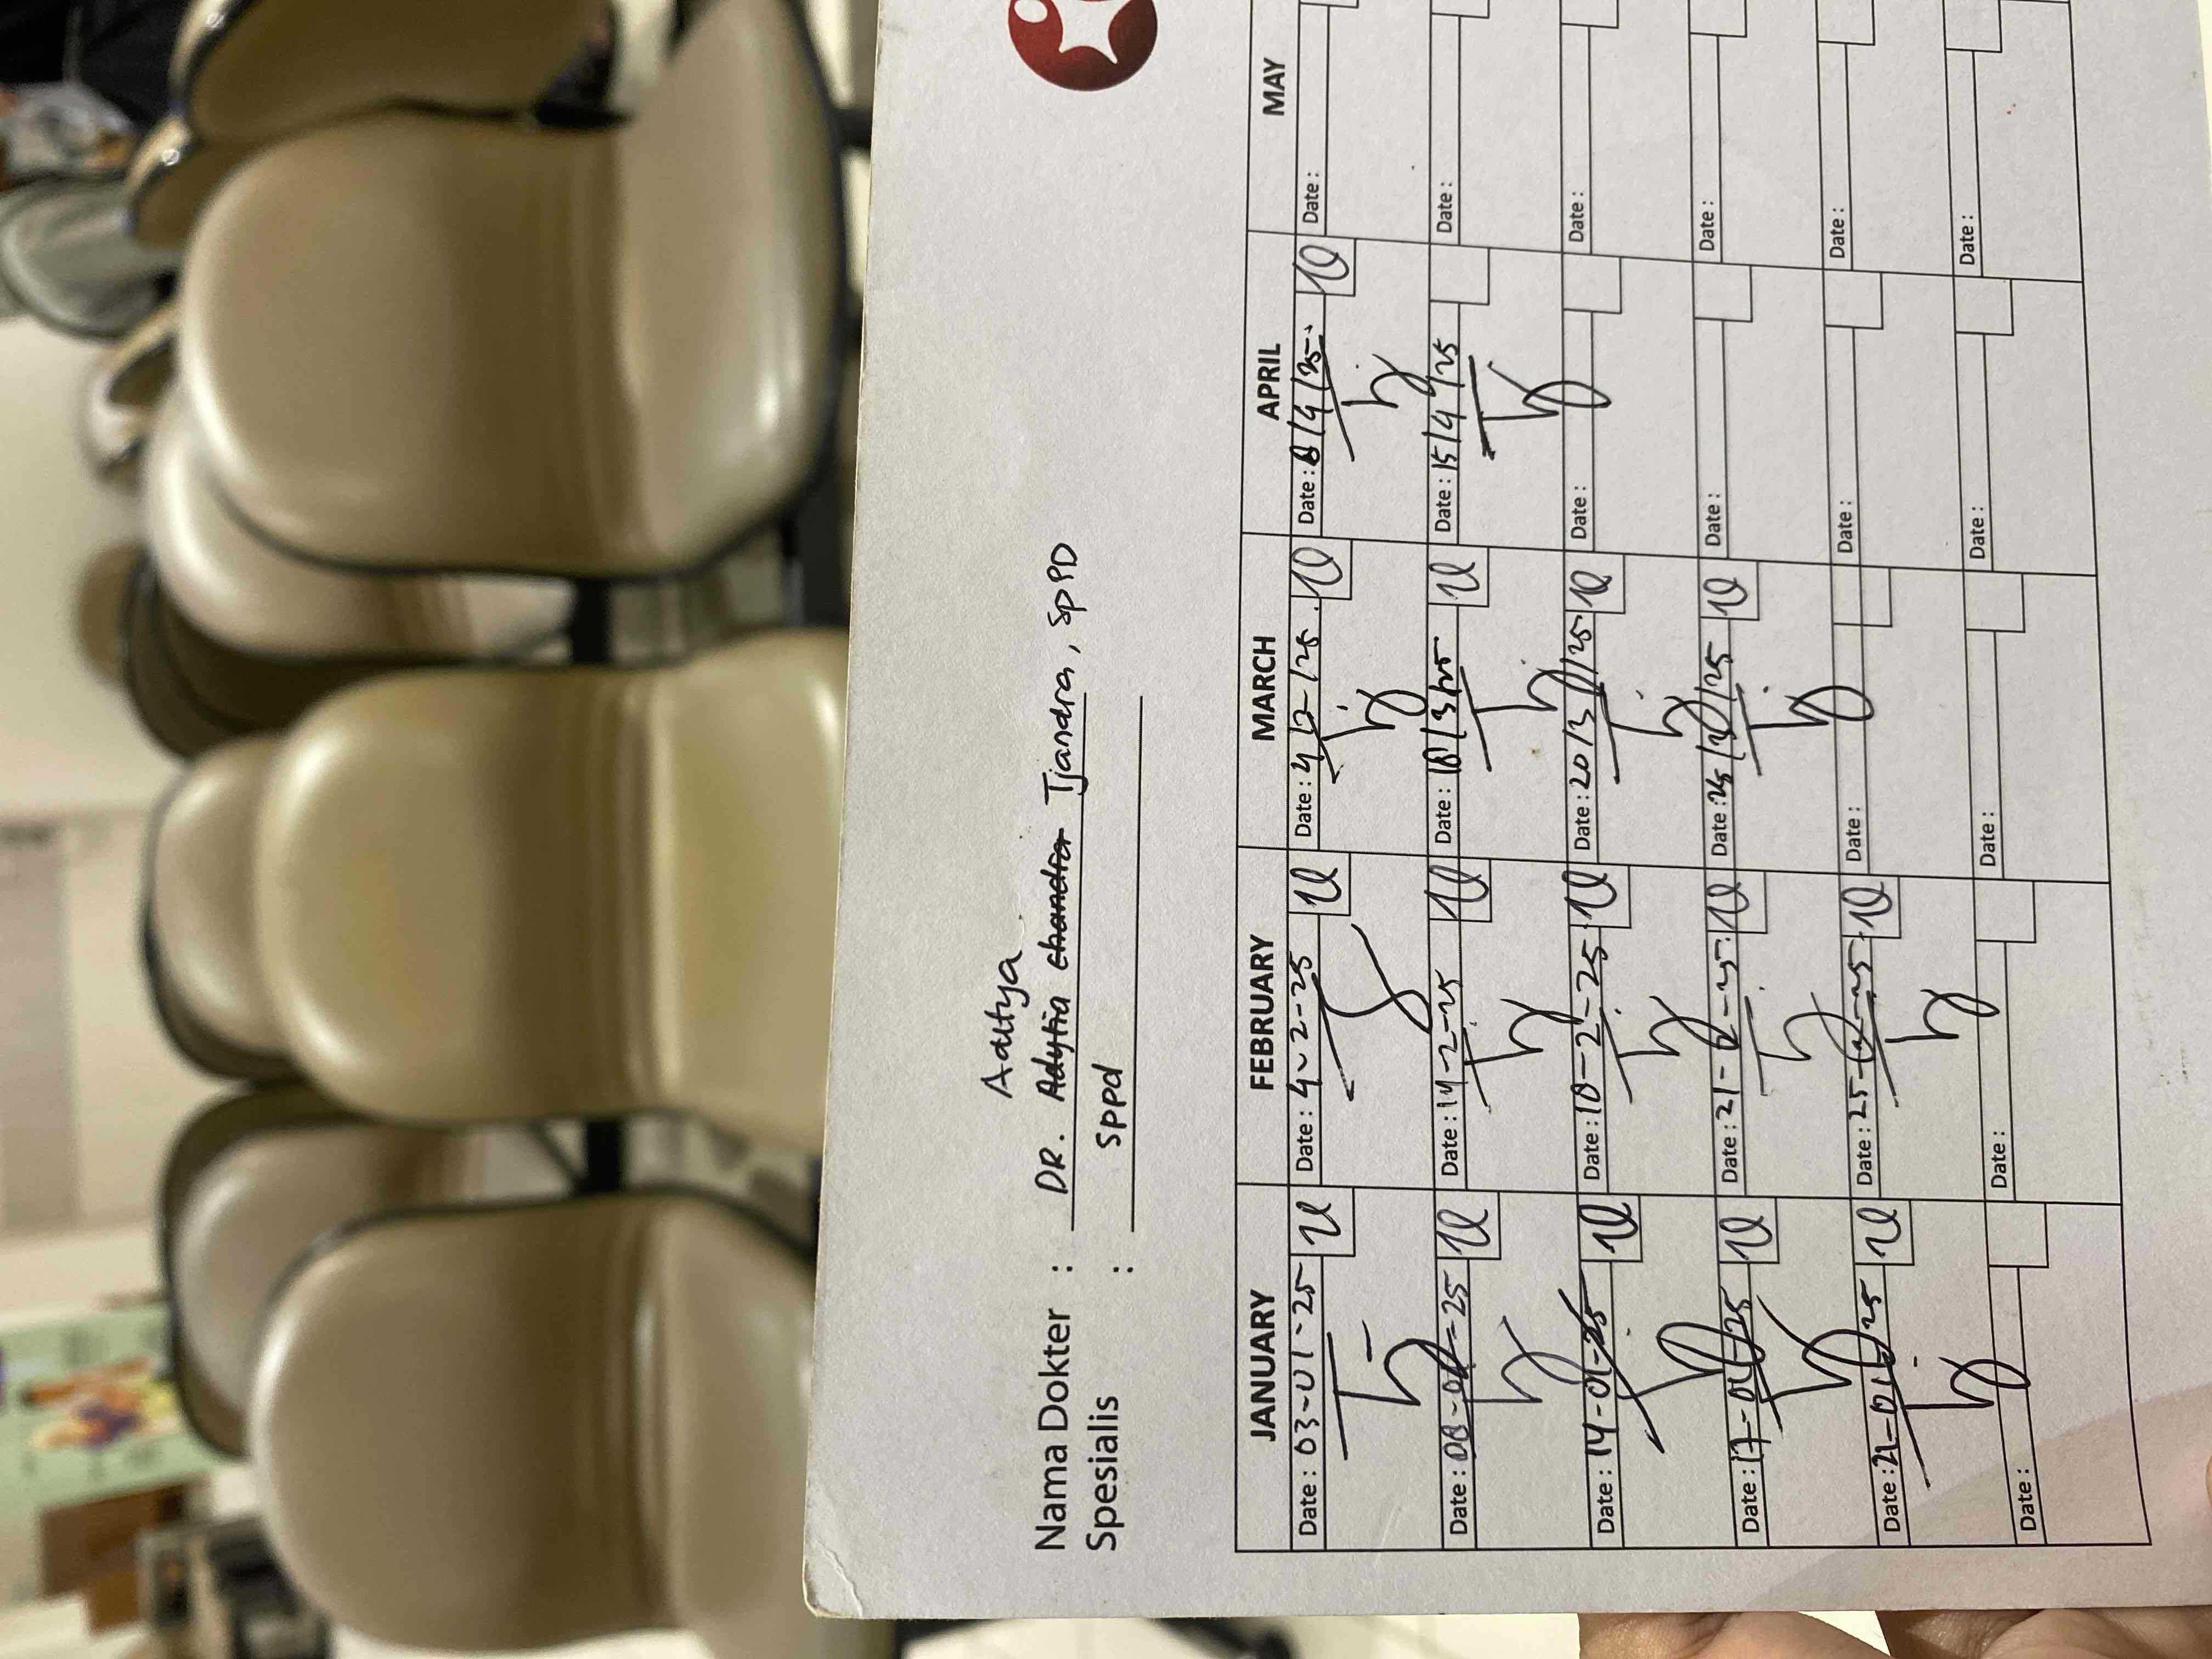 Aditya
Nama Dokter : DR. Adytia Chandra Tjandra, SpPD
Spesialis : SPPd
JANUARY FEBRUARY MARCH APRIL MAY
Date : 03-01-25 Date : 4-2-25 Date : 4/ /25 Date : 8/4/25 Date :
Date : 08-01-25 Date : 14-2-25 Date : 18/3/25 Date : 15/4/25 Date :
Date : 14-01-25 Date : 18-2-25 Date : 20/3/25 Date : Date :
Date : 17-01-25 Date : 21-2-25 Date : 25/3/25 Date : Date :
Date : 21-01-25 Date : 25-2-25 Date : Date : Date :
Date : Date : Date : Date : Date :